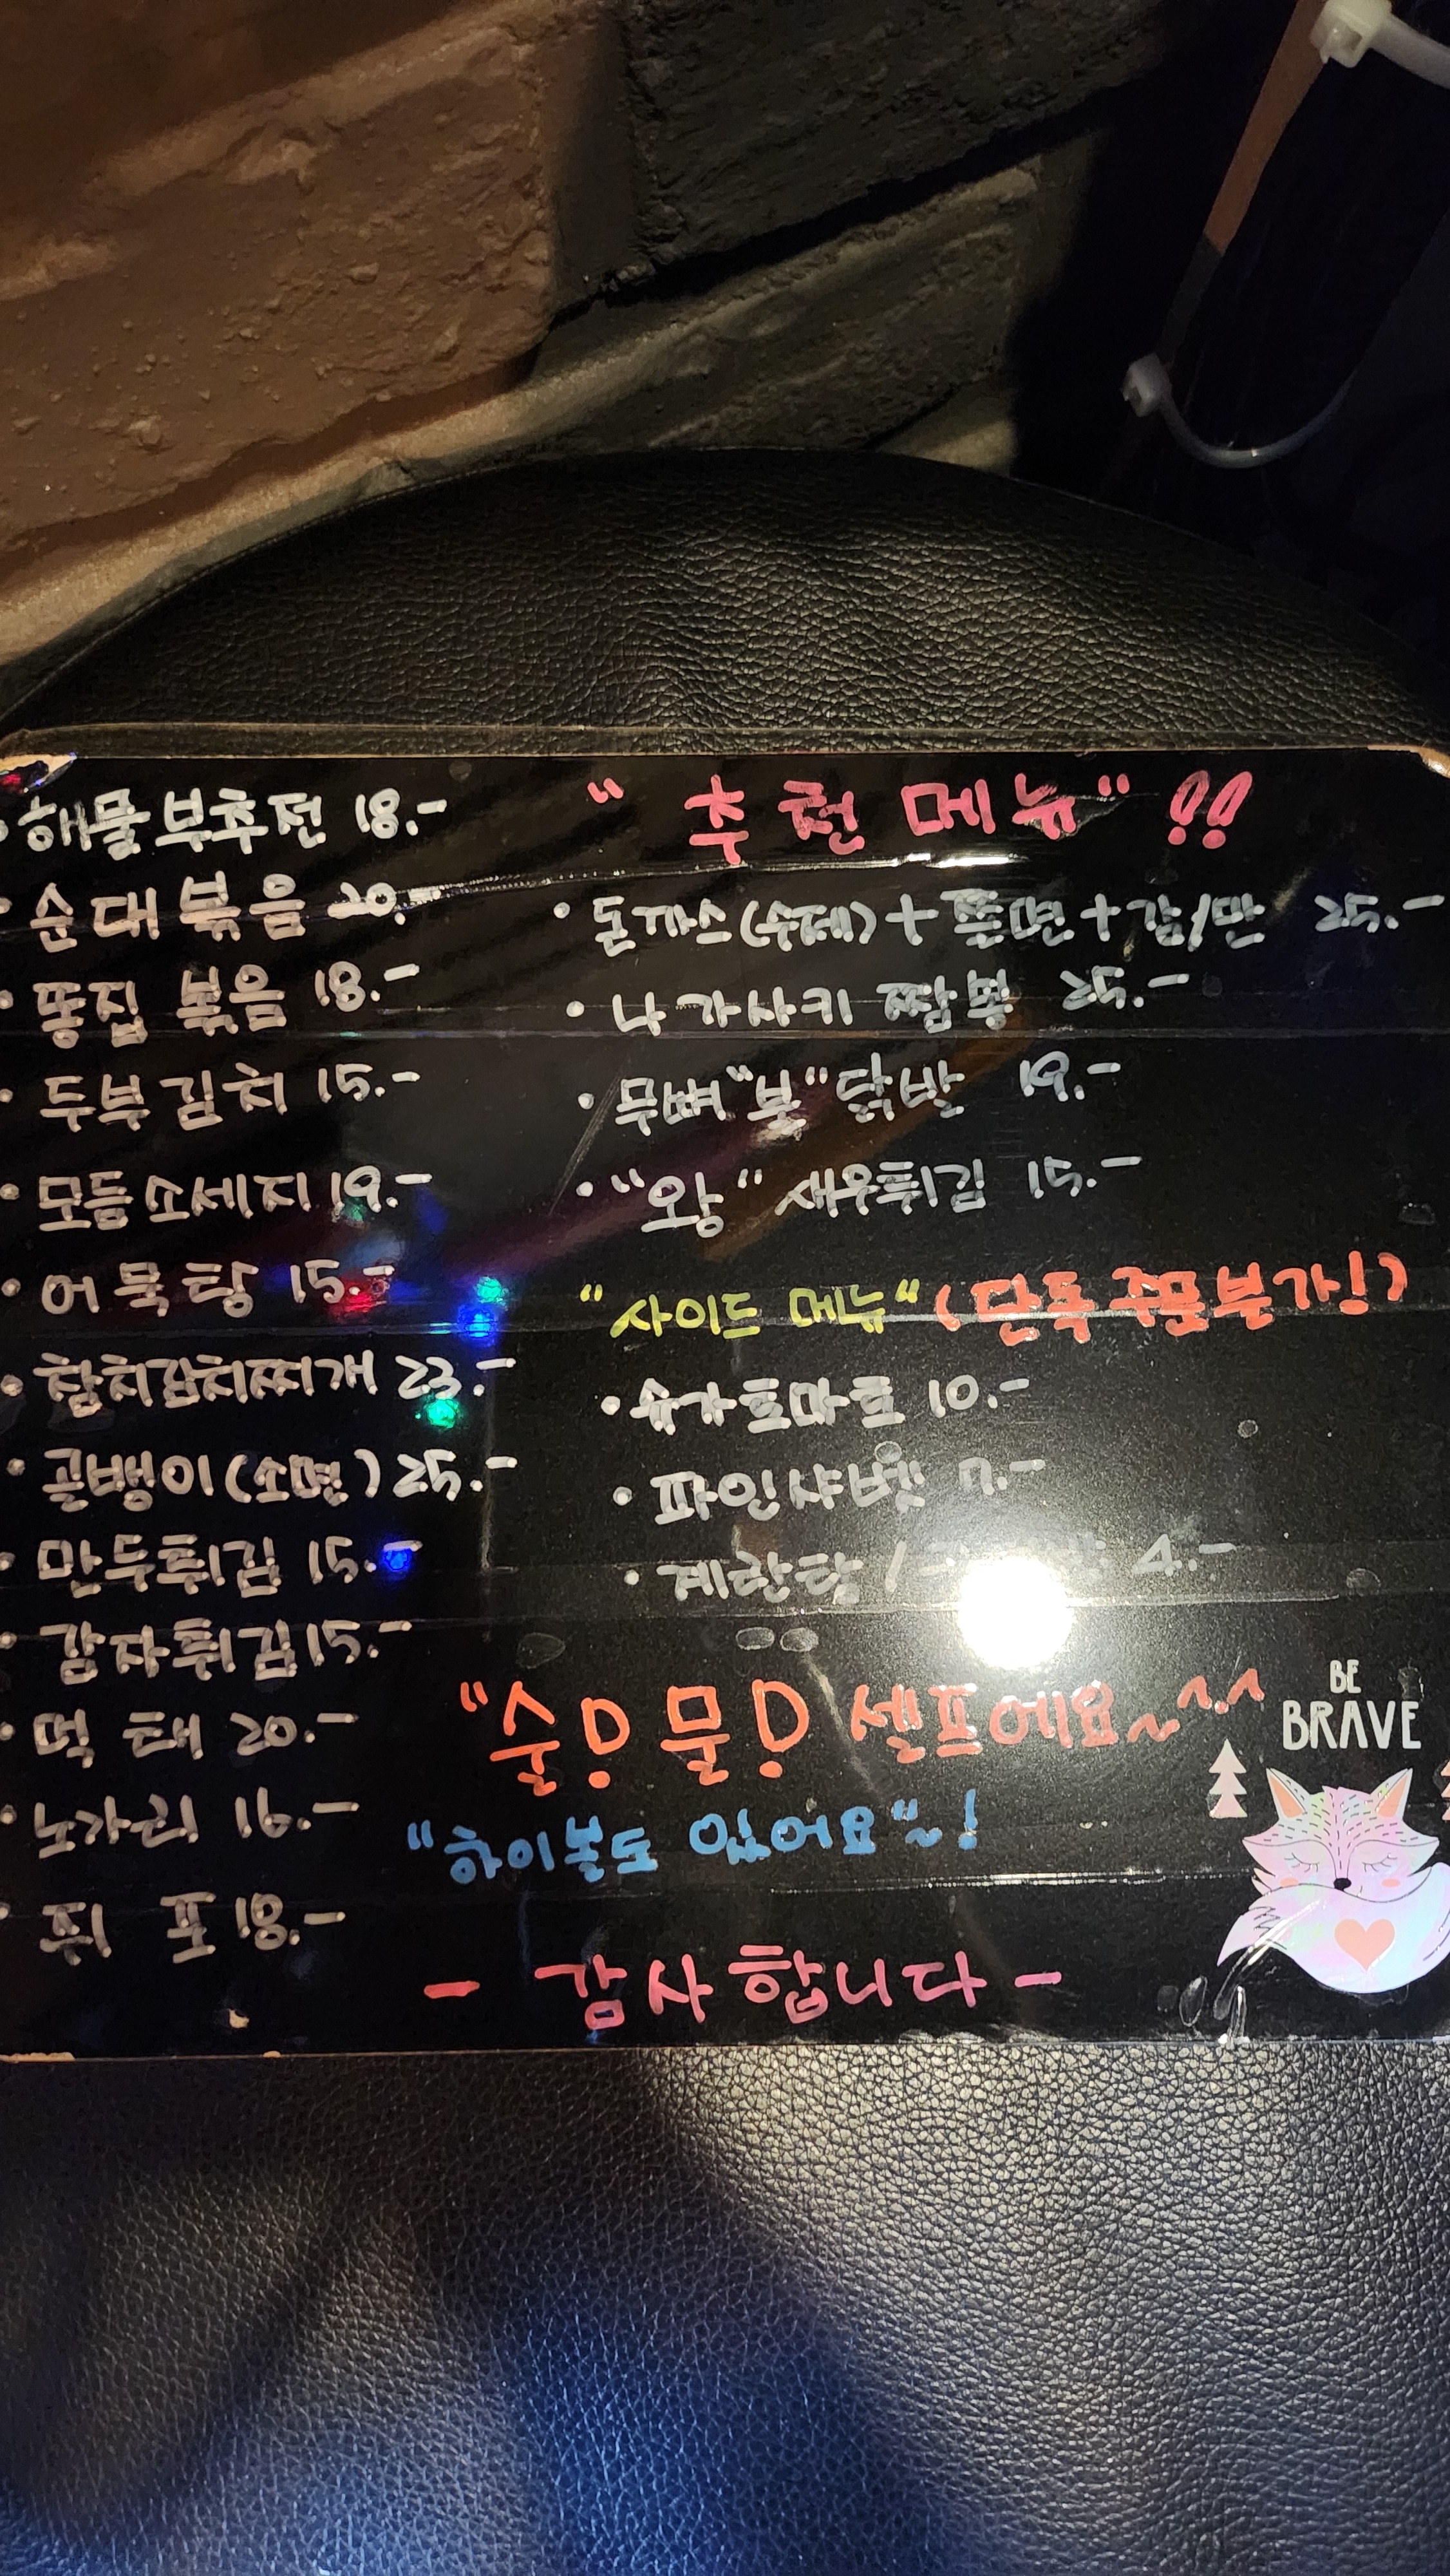 · 해물부추전 18.-
· 순대볶음 20.-
· 똥집 볶음 18.-
· 두부김치 15.-
· 모듬소세지 19.-
· 어묵탕 15.-
· 참치김치찌개 23.-
· 골뱅이(소면) 25.-
· 만두튀김 15.-
· 감자튀김 15.-
· 먹태 20.-
· 노가리 16.-
· 쥐포 18.-
"추천메뉴"!!
· 돈까스(수제)+쫄면+감/만 25.-
· 나가사키 짬뽕 25.-
· 무뼈"불"닭발 19.-
· "왕" 새우튀김 15.-
"사이드 메뉴" (단독주문불가!)
· 슈가토마토 10.-
· 파인샤벳 7.-
· 계란탕 / 4.-
"술! 물! 셀프에요~^^
"하이볼도 있어요"~!
- 감사합니다 -
BE
BRAVE